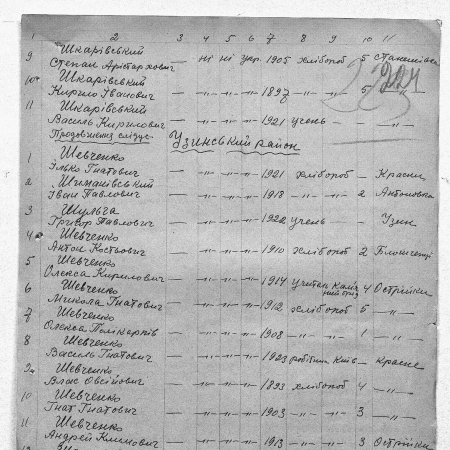 1 2 3 4 5 6 7 8 9 10 11
9 Шкарівський
Степан Арістархович — ні ні укр. 1905 хлібороб 5 Станишівка
10 Шкарівський
Кирило Іванович — -"- -"- -"- 1897 -"- -"- 5 -"-
11 Шкарівський
Василь Кирилович — -"- -"- -"- 1921 учень — — -"-
Продовження слідує
Узинський район
1 Шевченко
Ілько Гнатович — -"- -"- -"- 1921 хлібороб — Красне
2
Іван Павлович — -"- -"- -"- 1918 -"- -"- 2 Антонівка
3 Шульга
Григор Павлович — -"- -"- -"- 1922 учень Узин
4 Шевченко
Антон Костьович — -"- -"- -"- 1910 хлібороб 2
5 Шевченко
Олекса Кирилович — -"- -"- -"- 1914 4 Острійки
6 Шевченко
Микола Гнатович — -"- -"- -"- 1912 хлібороб 5 -"-
7 Шевченко
Олекса Полікарпів — -"- -"- -"- 1908 -"- -"- 1 -"-
8 Шевченко
Василь Гнатович — -"- -"- -"- 1923 робітник Київ — Красне
9 Шевченко
Влас Овсійович — -"- -"- -"- 1893 хлібороб 4 -"-
10 Шевченко
Гнат Гнатович — -"- -"- -"- 1903 -"- -"- 3 -"-
11 Шевченко
Андрей Климович — -"- -"- -"- 1913 -"- -"- 3 Острійки